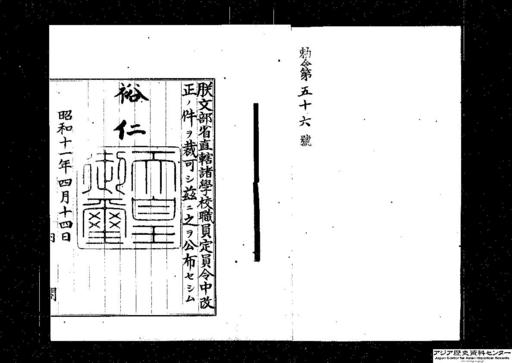 勅令第五十六號
朕文部省直轄諸學校職員定員令中改
正ノ件ヲ裁可シ茲ニ之ヲ公布セシム
裕仁
天皇御璽
昭和十一年四月十四日
内閣
アジア歴史資料センター
Japan Center for Asian Historical Records